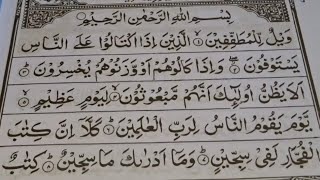 بِسْمِ اللهِ الرَّحْمٰنِ الرَّحِيْمِ
وَيْلٌ لِّلْمُطَفِّفِيْنَ ۙ۱ الَّذِيْنَ اِذَا اكْتَالُوْا عَلَى النَّاسِ
يَسْتَوْفُوْنَ ۖ۲ وَاِذَا كَالُوْهُمْ اَوْ وَّزَنُوْهُمْ يُخْسِرُوْنَ ۳
اَلَا يَظُنُّ اُولٰٓئِكَ اَنَّهُمْ مَّبْعُوْثُوْنَ ۙ۴ لِيَوْمٍ عَظِيْمٍ ۙ۵
يَّوْمَ يَقُوْمُ النَّاسُ لِرَبِّ الْعٰلَمِيْنَ ۶ كَلَّآ اِنَّ كِتٰبَ
الْفُجَّارِ لَفِيْ سِجِّيْنٍ ۷ وَمَآ اَدْرٰىكَ مَا سِجِّيْنٌ ۸ كِتٰبٌ